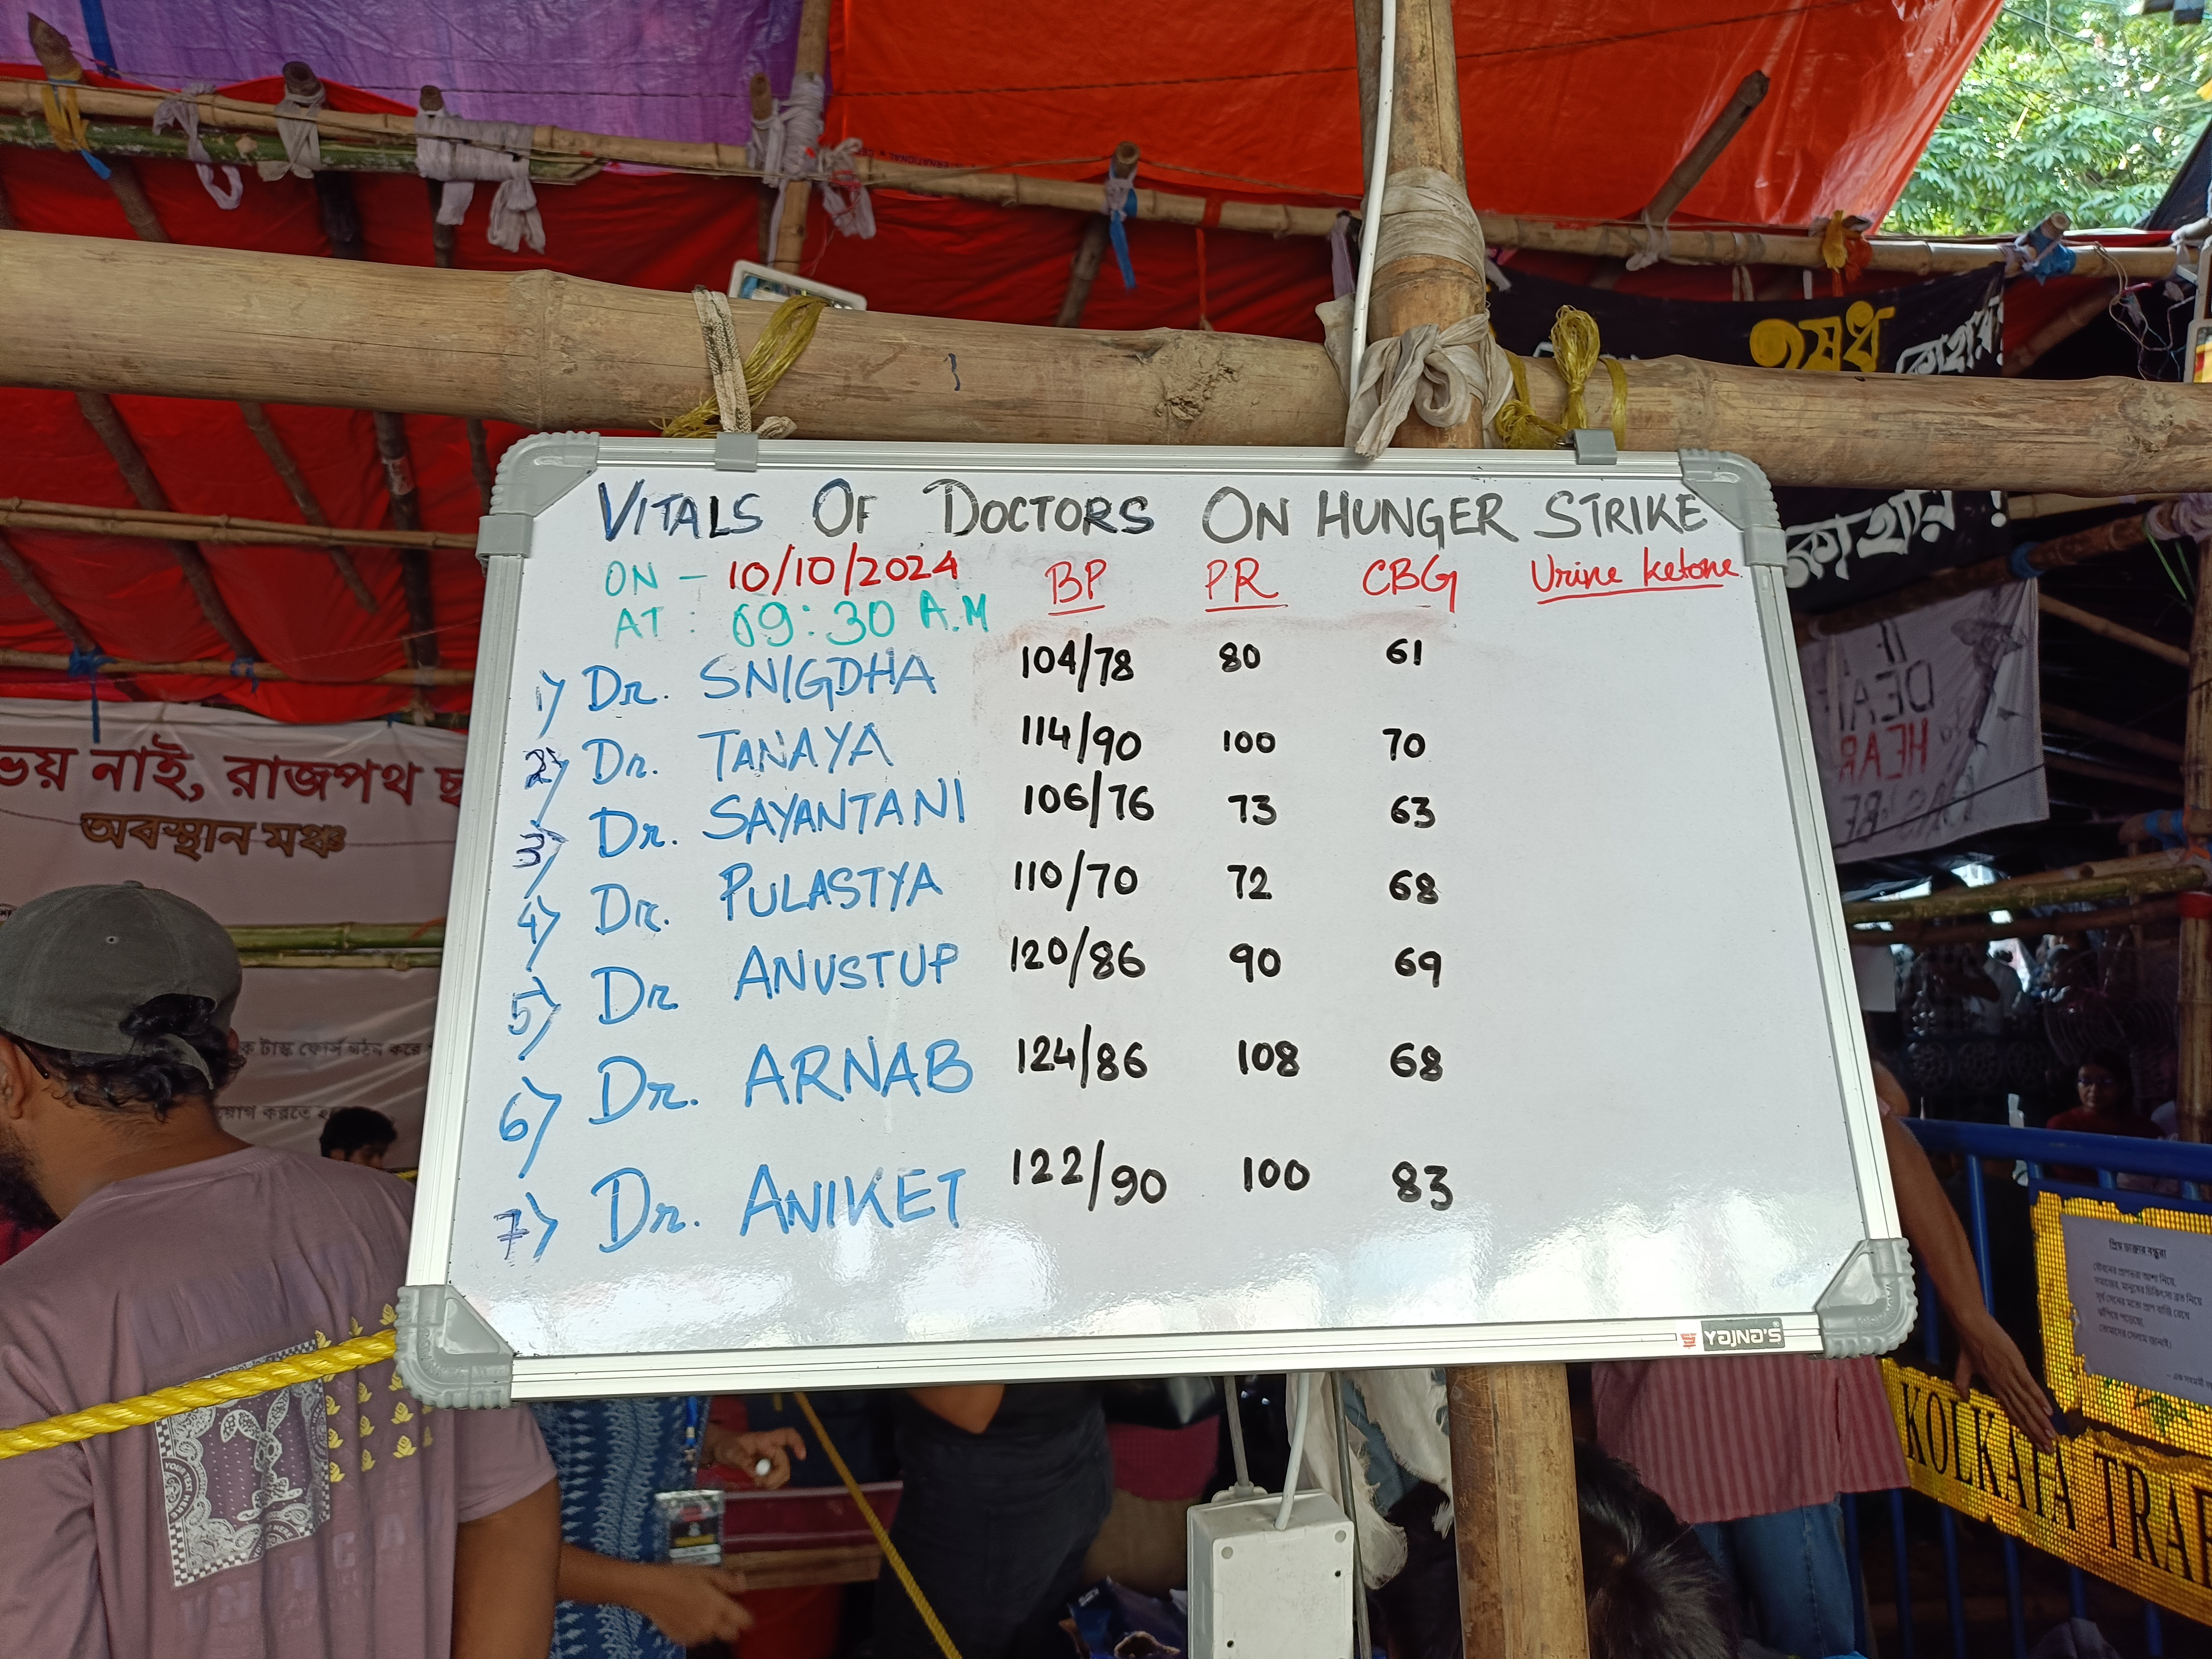 ঔষধ কোথায়
কোথায় !
VITALS OF DOCTORS ON HUNGER STRIKE
ON - 10/10/2024 BP PR CBG Urine ketone
AT : 09:30 A.M
1) Dr. SNIGDHA 104/78 80 61
2) Dr. TANAYA 114/90 100 70
3) Dr. SAYANTANI 106/76 73 63
4) Dr. PULASTYA 110/70 72 68
5) Dr ANUSTUP 120/86 90 69
6) Dr. ARNAB 124/86 108 68
7) Dr. ANIKET 122/90 100 83
YAJNA'S
ভয় নাই, রাজপথ ছ
অবস্থান মঞ্চ
ক টাস্ক ফোর্স গঠন করে
য়োগ করতে হ
IF
DEAF
HEAR
প্রিয় ডাক্তার বন্ধুরা
KOLKATA TRAF